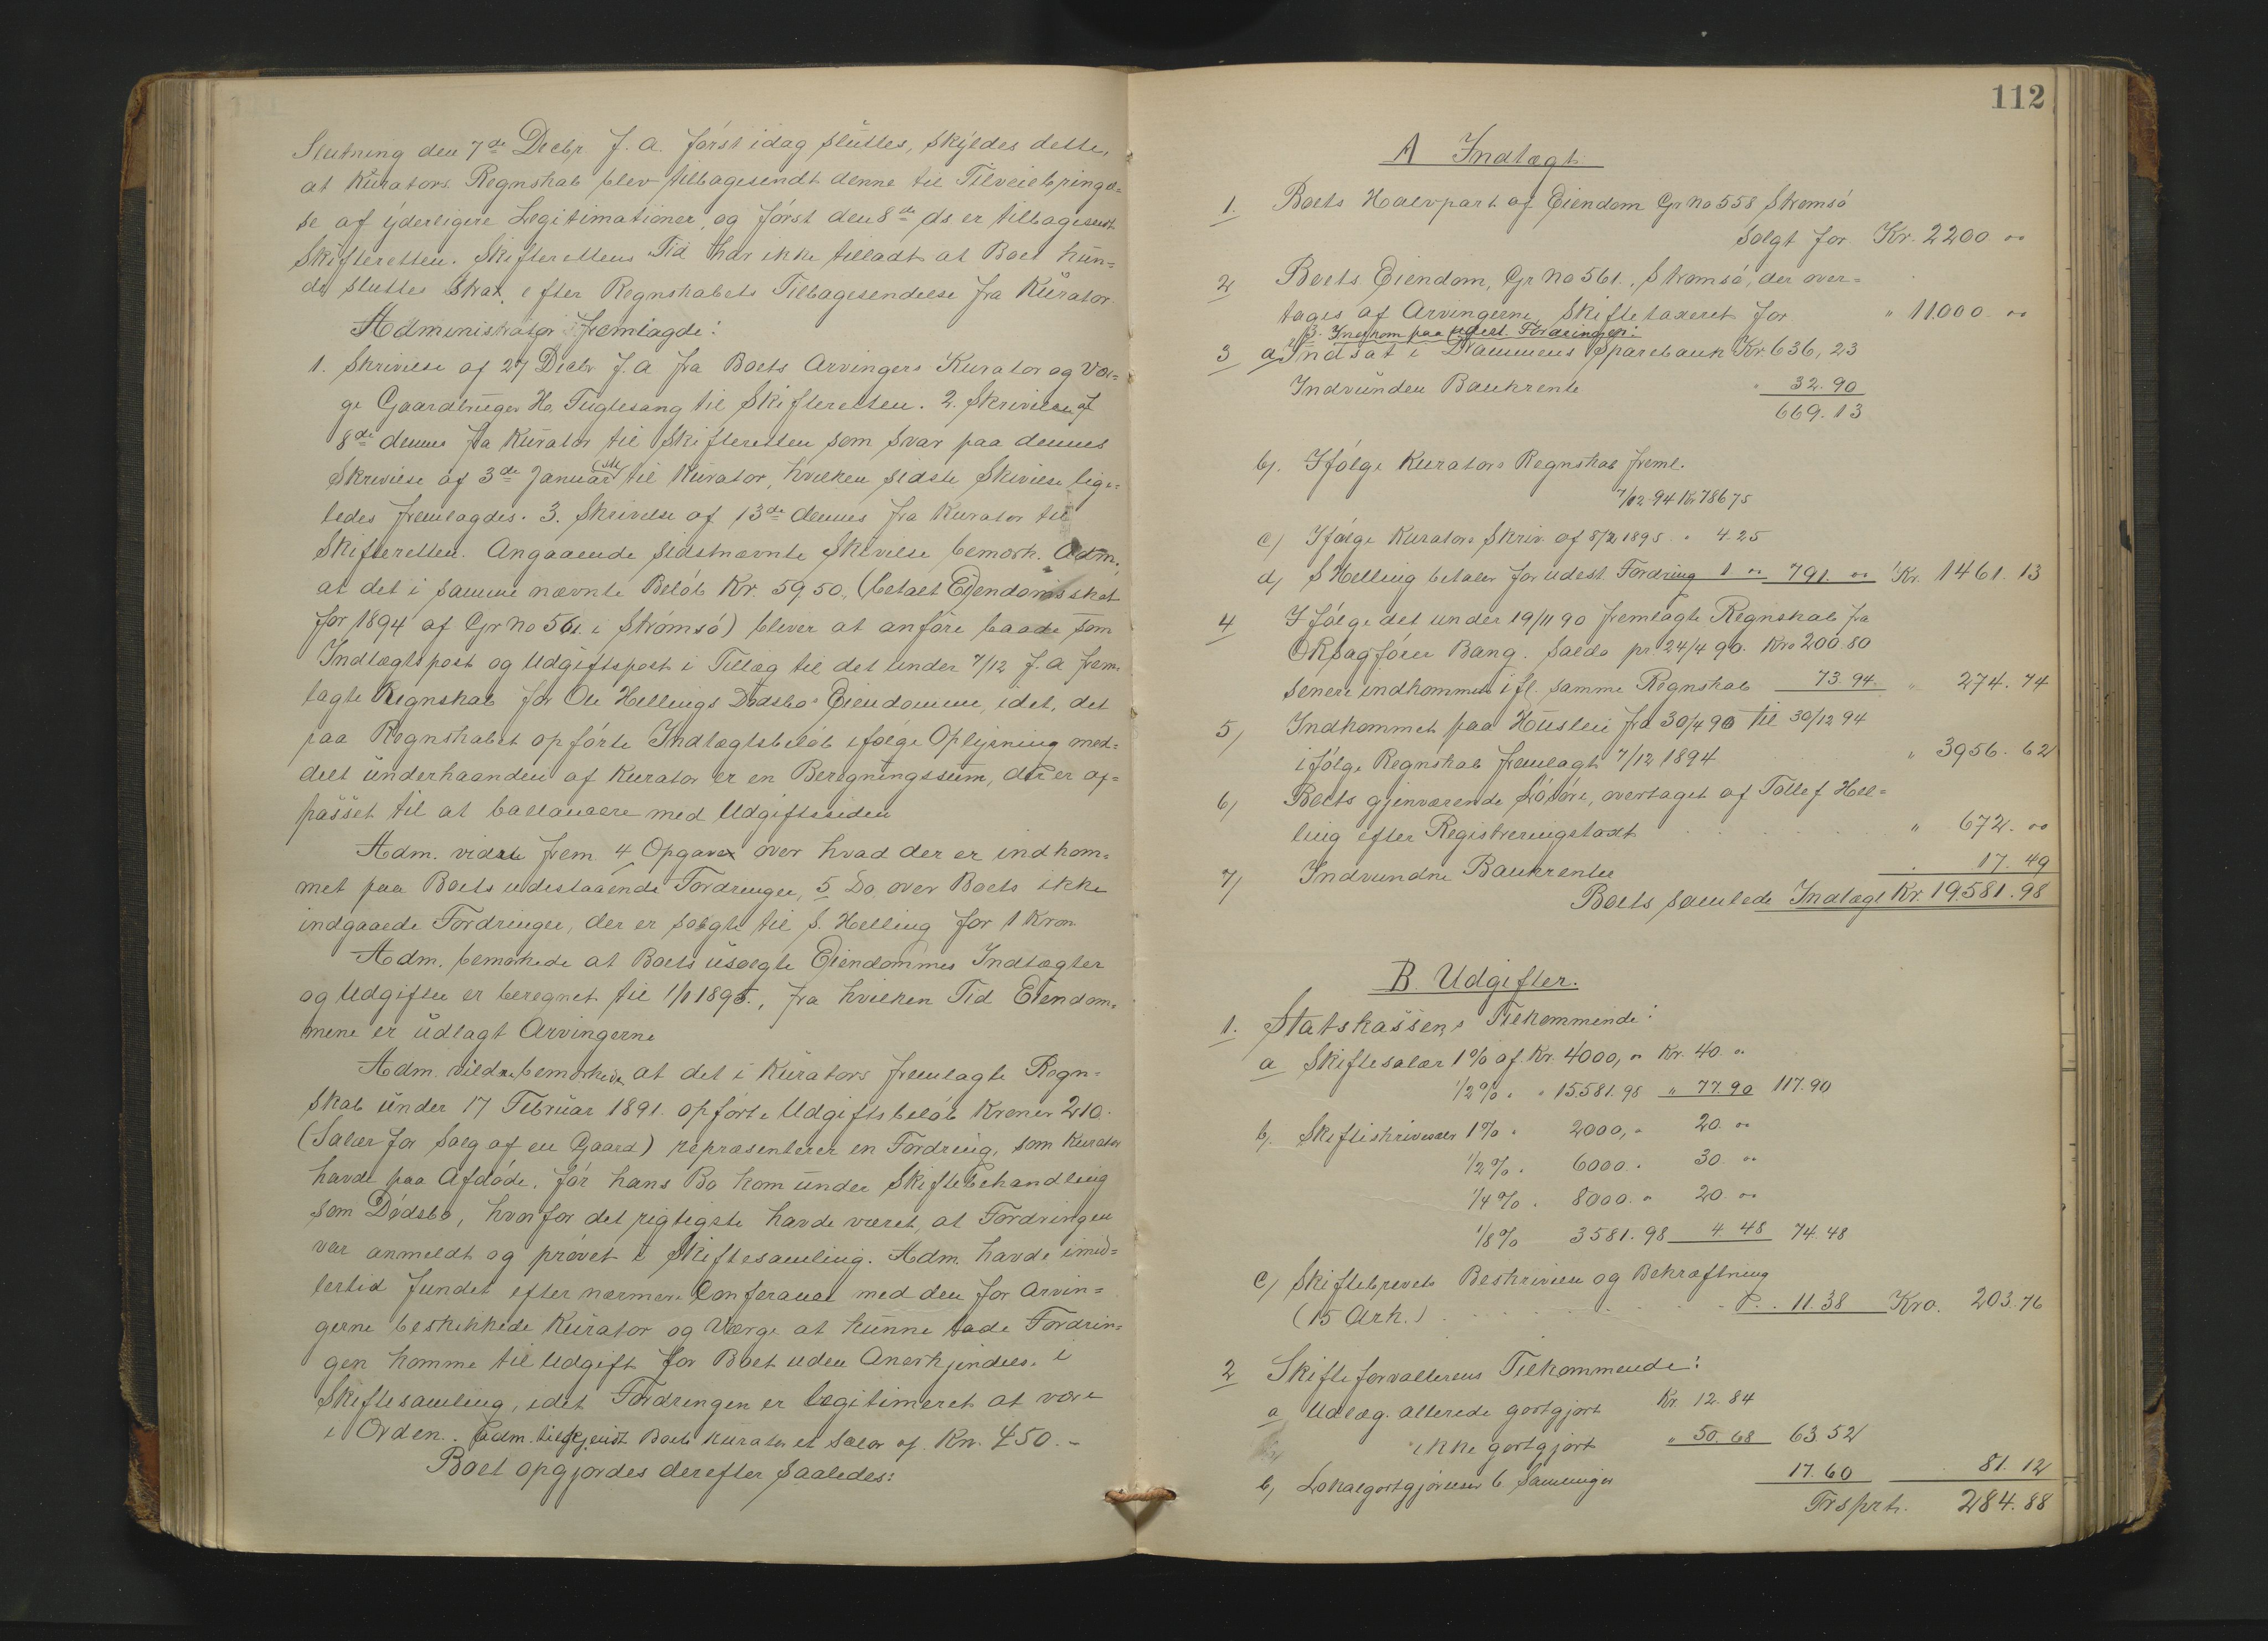 Slutning den 7de Decbr f. A. först idag sluttes, skyldes dette,
at Kurators Regnskab blev tilbagesendt denne til Tilveiebringel=
se af yderligere Legitimationer, og först den 8de ds er tilbagesendt
Skifteretten. Skifterettens Tid har ikke tilladt at Boet kun=
de sluttes strax efter Regnskabets Tilbagesendelse fra Kurator
Administrator fremlagde:
1. Skrivelse af 27 Decbr f. A fra Boets Arvingers Kurator og Vær=
ge Gaardbruger H. Fuglesang til Skifteretten. 2. Skrivelse af
8de dennes fra Kurator til Skifteretten som svar paa dennes
Skrivelse af 3de Januar til Kurator, hvilken sidste Skrivelse lige=
ledes fremlagdes. 3. Skrivelse af 13de dennes fra Kurator til
Skifteretten. Angaaende sidstnævnte Skrivelse bemærk. Adm.
at det i samme nævnte Belöb Kr. 59.50, (betalt Eiendomsskat
for 1894 af Gr No 561. i Strömsö) bliver at anföre baade som
Indtægtspost og Udgiftspost i Tillæg til det under 7/12 f. a frem=
lagte Regnskab for Ole Hellings Dödsbos Eiendomme, idet, det
paa Regnskabet opförte Indtægtsbelöb ifölge Oplysning med=
delt underhaanden af Kurator er en Beregningssum, der er af=
passet til at ballancere med Udgiftssiden
Adm. vidre frem 4 Opgaver over hvad der er indkom=
met paa Boets udestaaende Fordringer, 5 Do. over Boets ikke
indgaaede Fordringer, der er solgte til S. Helling for 1 Kron
Adm. bemærkede at Boets usolgte Eiendommes Indtægter
og Udgifter er beregnet til 1/1 1895., fra hvilken Tid Eiendom=
mene er udlagt Arvingerne
Adm. vilde bemærke at det i Kurators fremlagte Regn=
skab under 17 Februar 1891. opförte Udgiftsbelöb Kroner 210.
(Salær for Salg af en Gaard) repræsenterer en Fordring, som Kurator
havde paa Afdöde, för hans Bo kom under Skiftebehandling
som Dödsbo, hvorfor det rigtigste havde været, at Fordringen
var anmeldt og prövet i Skiftesamling. Adm. havde imid=
lertid fundet efter nærmere Conferance med den for Arvin=
gerne beskikkede Kurator og Værge at kunne lade Fordrin=
gen komme til Udgift for Boet uden Anerkjendelse i
Skiftesamling, idet Fordringen er legitimeret at være
i Orden. Adm. tilkjendt Boets Kurator et Salær af Kr. 450.-
Boet opgjordes derefter saaledes:
112
A Indtægt
1. Boets Halvpart af Eiendom Gr No 558 Strömsö
solgt for Kr. 2200 "
2 Boets Eiendom, Gr No 561., Strömsö, der over=
tages af Arvingerne, Skiftetaxeret for " 11.000 "
3. Indkom paa udest. Fordringer:
3 a Indsat i Drammens Sparebank Kr. 636,23
Indvunden Bankrente " 32.90
669.13
b). Ifölge Kurators Regnskab freml.
7/12 94 Kr 786 75
c) Ifölge Kurators Skriv. af 8/2 1895 " 4.25
d) S Helling betaler for udest. Fordring 1 " 791. " Kr. 1461.13
4 Ifölge det under 19/11 90 fremlagte Regnskab fra
ORsagförer Bang. Saldo pr. 24/4 90. Kro 200.80
senere indkommen ifl. samme Regnskab 73.94. " 274.74
5) Indkommet paa Husleie fra 30/4 90 til 30/12 94
ifölge Regnskab fremlagt 7/12 1894 " 3956.62
6) Boets gjenværende Lösöre, overtaget af Tollef Hel=
ling efter Registreringstaxt " 672. "
7) Indvundne Bankrenter 17.49
Boets samlede Indtægt Kr. 19.581.98
B. Udgifter.
1. Statskassens Tilkommende:
a Skiftesalær 1% af Kr. 4000, " Kr. 40. "
1/2% " " 15581.98 " 77.90 117.90
b). Skifteskriversalær 1% " 2000, " 20 "
1/2% " 6000 " 30 "
1/4% " 8000. " 20. "
1/8% 3581.98 4.48 74.48
c) Skiftebrevets Beskrivelse og Bekræftning
(15 Ark.) 11.38 Kro. 203.76
2 Skifteforvalterens Tilkommende:
a Udlæg. allerede godtgjort Kr. 12.84
ikke godtgjort " 50.68 63.52
b) Lokalgodtgjörelse 6 Samlinger 17.60 81.12
Trsprt. 284.88